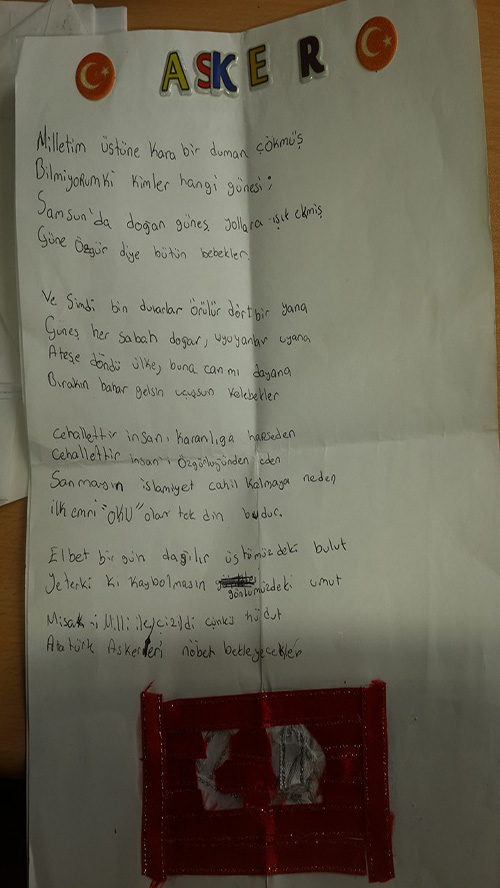 ASKER
Milletim üstüne kara bir duman çökmüş
Bilmiyorumki kimler hangi günesi;
Samsun'da doğan güneş yollara ışık ekmiş
Güne Özgür diye bütün bebekler.
Ve Şimdi bin duvarlar örülür dört bir yana
Güneş her sabah doğar, uyuyanlar uyana
Ateşe döndü ülke, buna can mı dayana
Bırakın bahar gelsin uçuşsun kelebekler
Cehalettir insanı karanlığa hapseden
Cehalettir insanı Özgürlüğünden eden
Sanmayın islamiyet cahil kalmaya neden
İlk emri "OKU" olan tek din budur.
Elbet bir gün dağılır üstümüzdeki bulut
Yeterki ki kaybolmasın gönlümüzdeki umut
Misak-i Milli ile çizildi çünkü hudut
Atatürk Askerleri nöbet bekleyecekler